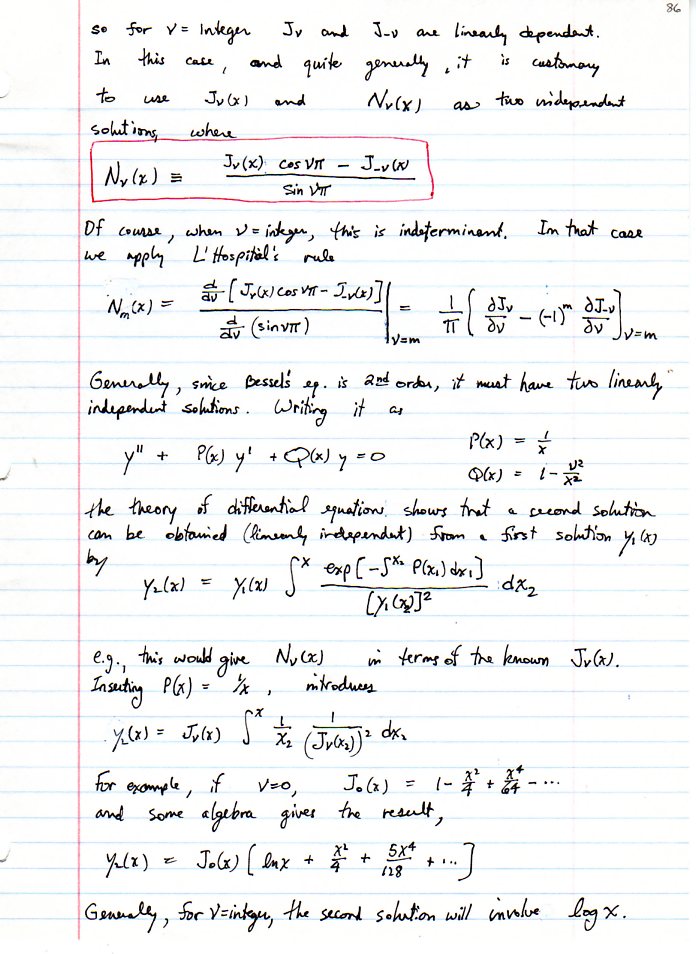 86
so for ν = Integer Jν and J-ν are linearly dependent.
In this case, and quite generally, it is customary
to use Jν(x) and Nν(x) as two independent
solutions, where
Nν(x) ≡ (Jν(x) cos νπ − J-ν(x)) / (sin νπ)
Of course, when ν = integer, this is indeterminent. In that case
we apply L'Hospital's rule
Nm(x) = (d/dν [Jν(x) cos νπ − J-ν(x)]) / (d/dν (sin νπ)) |ν=m = 1/π [∂Jν/∂ν − (-1)^m ∂J-ν/∂ν]ν=m
Generally, since Bessel's eq. is 2nd order, it must have two linearly
independent solutions. Writing it as
y'' + P(x) y' + Q(x) y = 0
P(x) = 1/x
Q(x) = 1 − ν²/x²
the theory of differential equation shows that a second solution
can be obtained (linearly independent) from a first solution y₁(x)
by
y₂(x) = y₁(x) ∫^x (exp[−∫^x₂ P(x₁) dx₁]) / ([y₁(x₂)]²) dx₂
e.g., this would give Nν(x) in terms of the known Jν(x).
Inserting P(x) = 1/x, introduces
y₂(x) = Jν(x) ∫^x 1/x₂ 1/(Jν(x₂))² dx₂
For example, if ν=0, J₀(x) = 1 − x²/4 + x⁴/64 − ···
and some algebra gives the result,
y₂(x) = J₀(x) [ln x + x²/4 + 5x⁴/128 + ···]
Generally, for ν=integer, the second solution will involve log x.